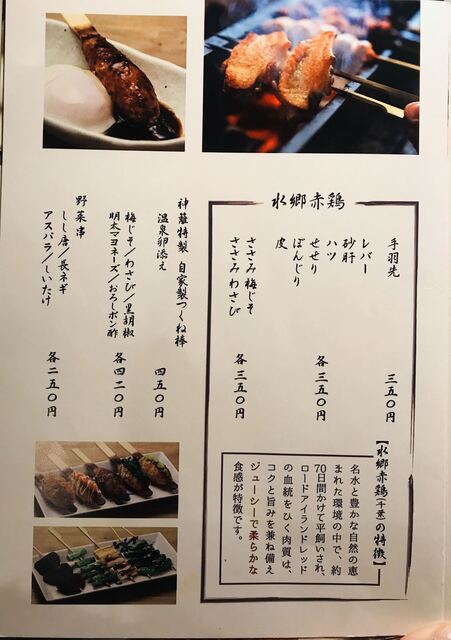 水郷赤鶏
手羽先 三五〇円
レバー
砂肝
ハツ
せせり
ぼんじり
皮
各三五〇円
ささみ梅じそ
ささみわさび
各三五〇円
【水郷赤鶏(千葉)の特徴】
名水と豊かな自然の恵
まれた環境の中で、約
70日間かけて平飼いされ、
ロードアイランドレッド
の血統をひく肉質は、
コクと旨みを兼ね備え
ジューシーで柔らかな
食感が特徴です。
特製 自家製つくね棒
温泉卵添え 四五〇円
梅じそ/わさび/黒胡椒
明太マヨネーズ/おろしポン酢
各四二〇円
野菜串
しし唐/長ネギ
アスパラ/しいたけ
各二五〇円